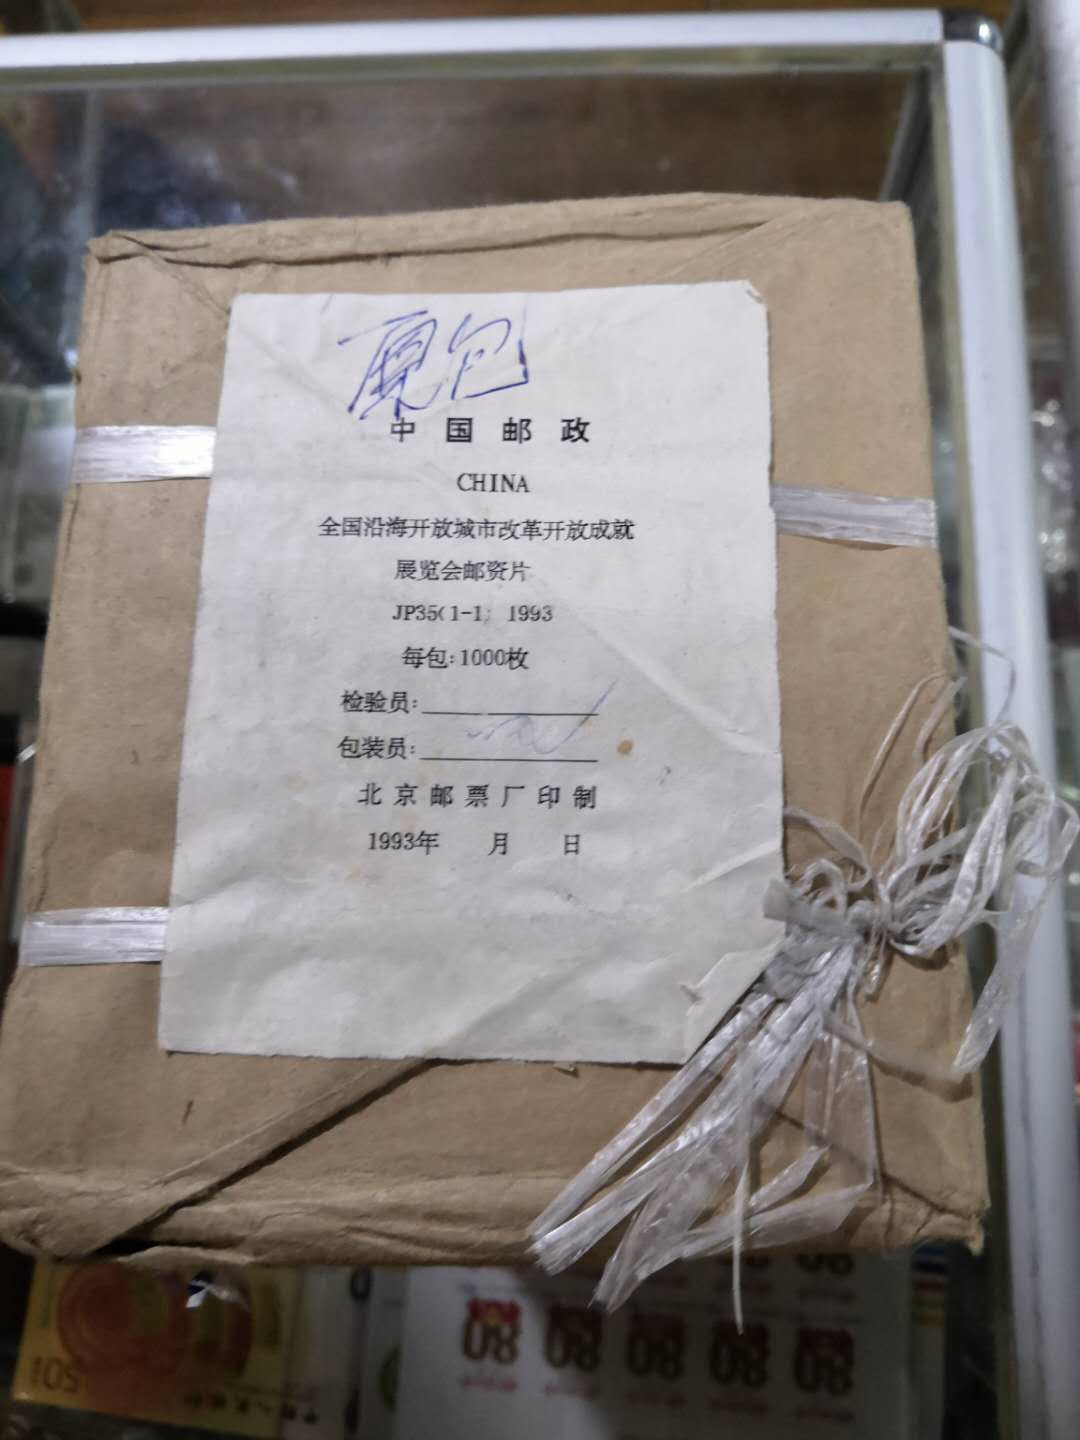 原包
中国邮政
CHINA
全国沿海开放城市改革开放成就
展览会邮资片
JP35(1-1) 1993
每包:1000枚
检验员:
包装员:
北京邮票厂印制
1993年 月 日
50
80 80 80 80 80